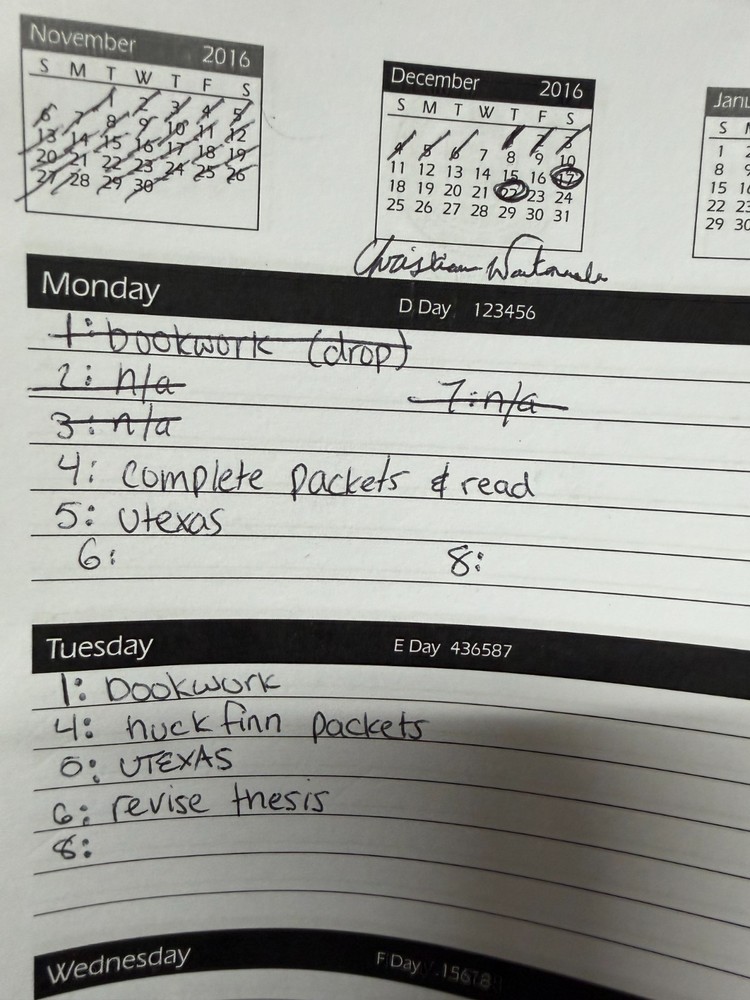 November 2016
S M T W T F S
1 2 3 4 5
6 7 8 9 10 11 12
13 14 15 16 17 18 19
20 21 22 23 24 25 26
27 28 29 30
December 2016
S M T W T F S
1 2 3
4 5 6 7 8 9 10
11 12 13 14 15 16 17
18 19 20 21 22 23 24
25 26 27 28 29 30 31
Janu
S M
1 2
8 9
15 16
22 23
29 30
Christian
Monday D Day 123456
1: bookwork (drop)
2: n/a 7: n/a
3: n/a
4: complete packets & read
5: Utexas
6: 8:
Tuesday E Day 436587
1: bookwork
4: huck finn packets
5: UTEXAS
6: revise thesis
8:
Wednesday F Day 15678